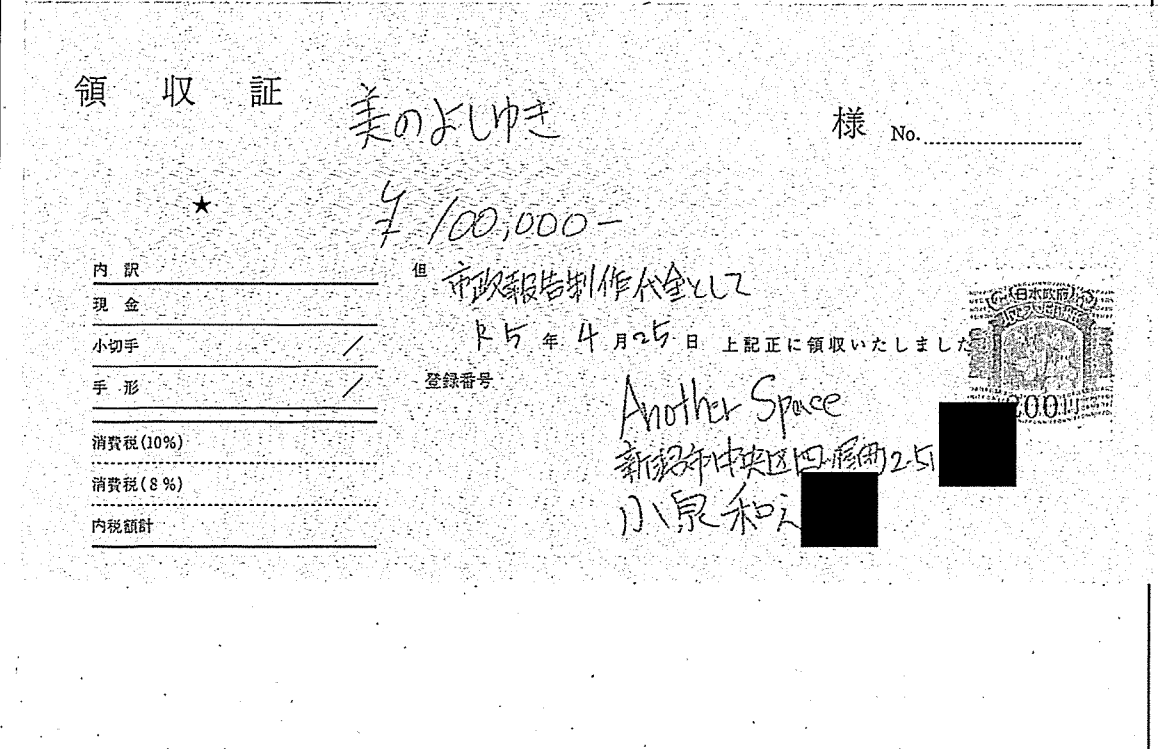 領 収 証 美のよしゆき 様 No.
★ ¥100,000-
内 訳
現 金
小切手 /
手 形 /
消費税(10%)
消費税(8%)
内税額計
但 市政報告制作代金として
R5 年 4 月 25 日 上記正に領収いたしました
登録番号
Another Space
新潟市中央区 2-51
小泉和え
日本政府
収入印紙
200円